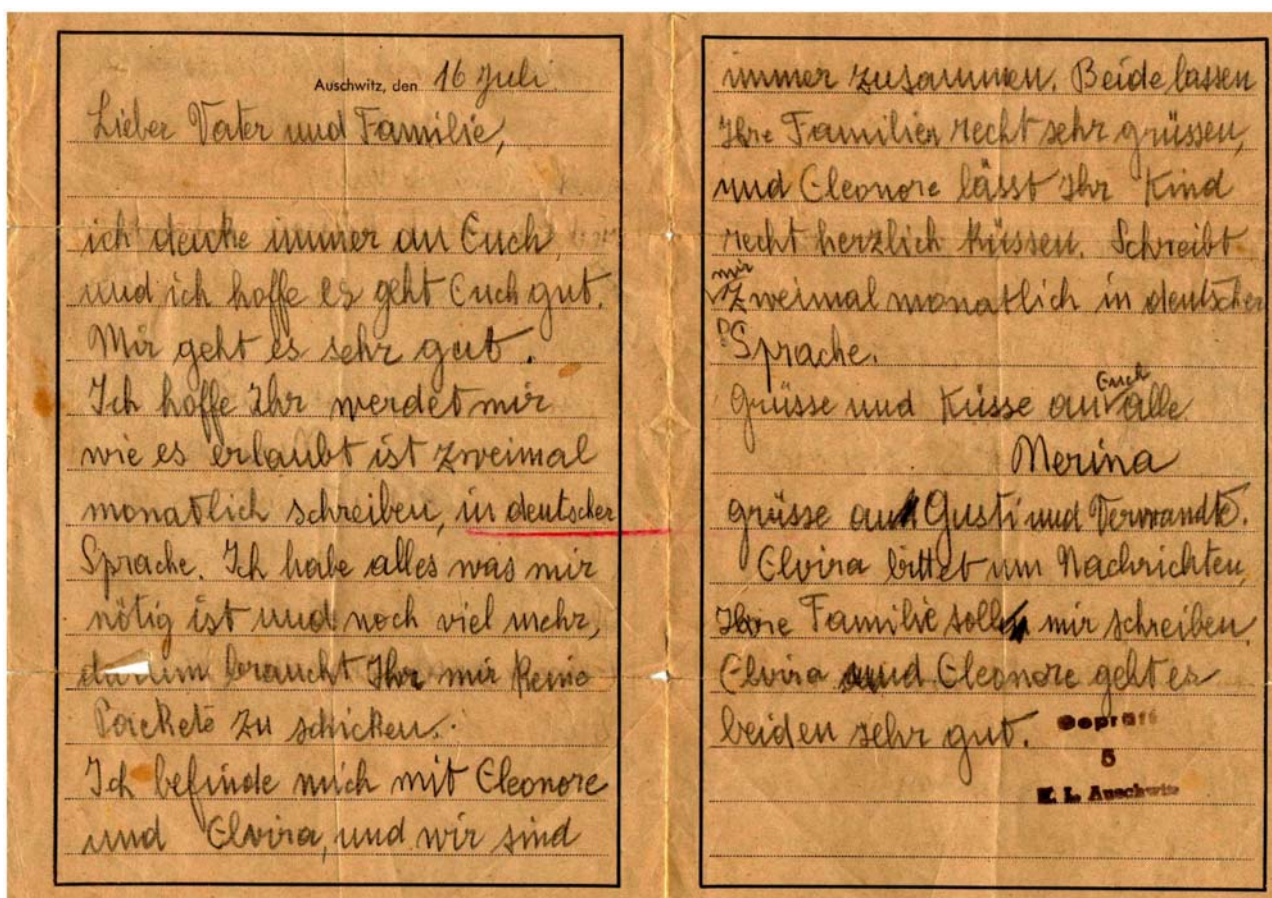 Auschwitz, den 16 Juli.
Lieber Vater und Familie,
ich denke immer an Euch,
und ich hoffe es geht Euch gut.
Mir geht es sehr gut.
Ich hoffe Ihr werdet mir
wie es erlaubt ist zweimal
monatlich schreiben, in deutscher
Sprache. Ich habe alles was mir
nötig ist und noch viel mehr,
darum braucht Ihr mir keine
Packete zu schicken.
Ich befinde mich mit Eleonore
und Elvira, und wir sind
immer zusammen. Beide lassen
Ihre Familien recht sehr grüssen,
und Eleonore lässt Ihr Kind
recht herzlich küssen. Schreibt
mir
zweimal monatlich in deutscher
Sprache.
Euch
Grüsse und Küsse an alle
Merina
grüsse an Gusti und Verwandte.
Elvira bittet um Nachrichten,
Ihre Familie soll mir schreiben.
Elvira und Eleonore geht es
beiden sehr gut.
Geprüft
5
K. L. Auschwitz